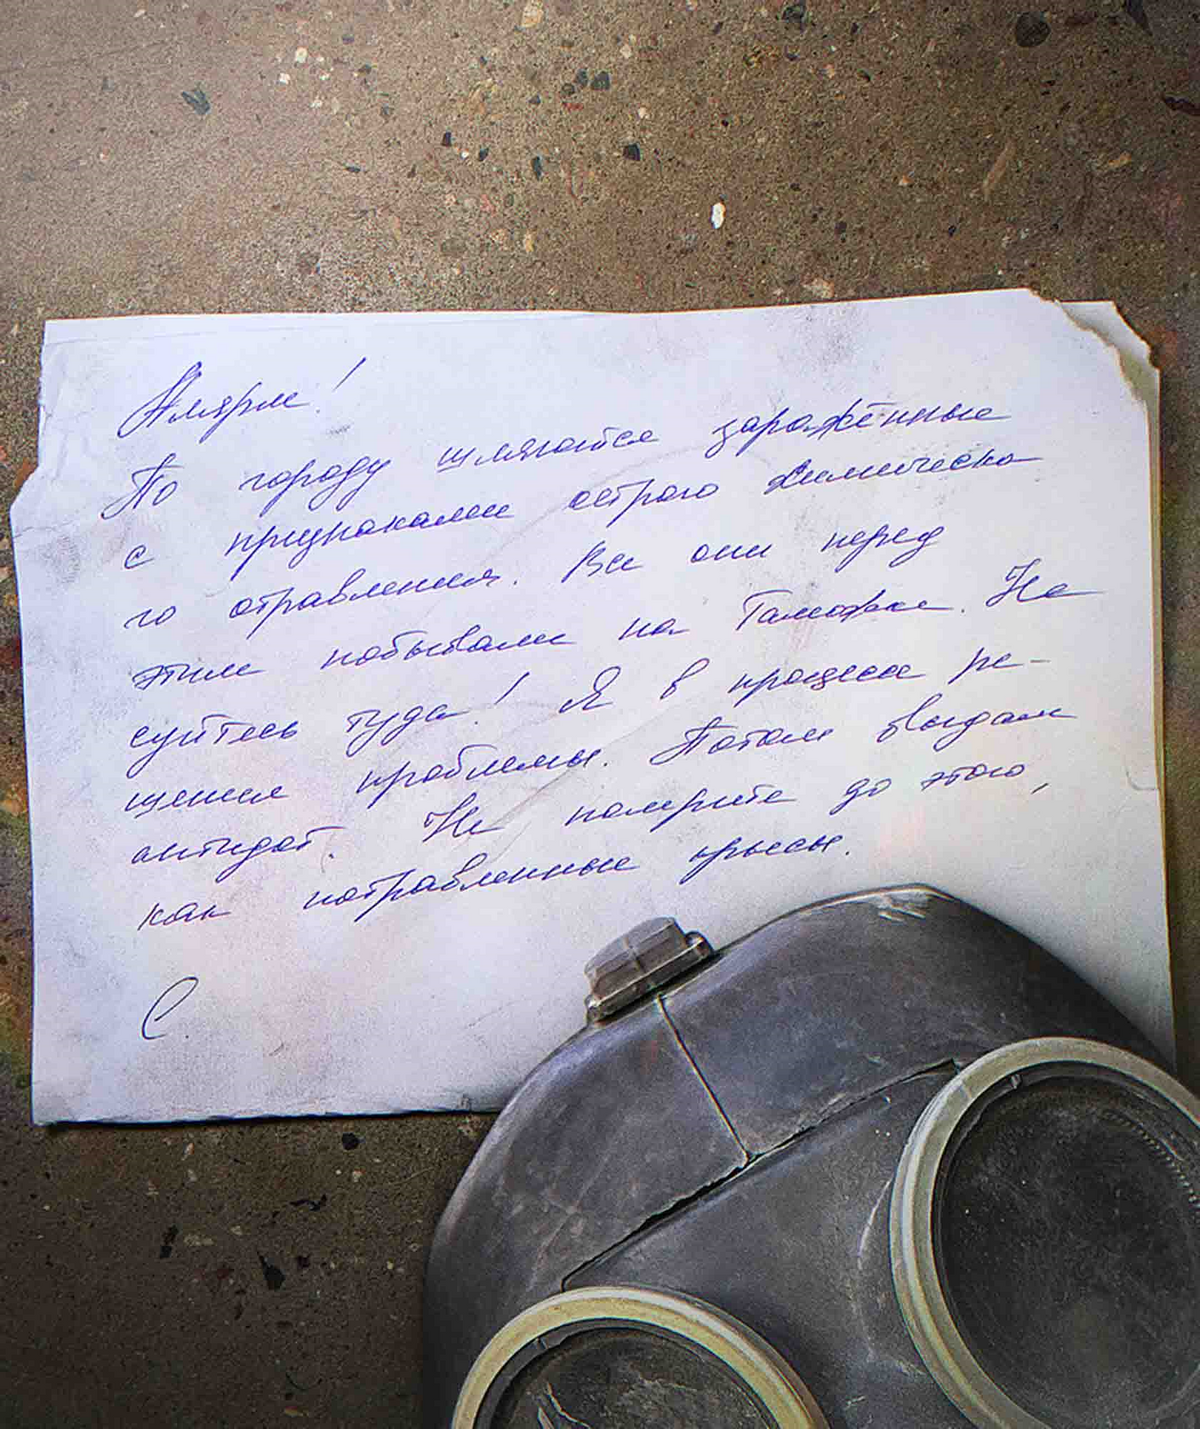 Алярм!
По городу шляются заражённые
с признаками острого химическо
го отравления. Все они перед
этим побывали на Таможне. Не
суйтесь туда! Я в процессе ре-
шения проблемы. Потом выдам
антидот. Не помрите до этого,
как потравленные крысы.
С.